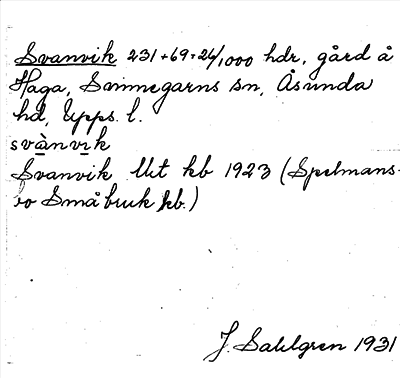 Svanvik 231+69=26/1000 hdr, gård å
Haga, Sånnegarns sn, Åsunda
hd, Upps. l.
svànvik
Svanvik Utt kb 1923 (Spelmans-
bo Småbruk kb.)
J. Sahlgren 1931